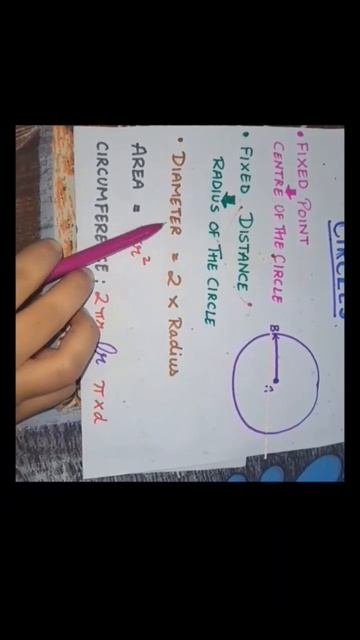 CIRCLES
• FIXED POINT
CENTRE OF THE CIRCLE
• FIXED DISTANCE
RADIUS OF THE CIRCLE
• DIAMETER = 2 × Radius
AREA = r²
CIRCUMFERENCE: 2πr Or π×d
B